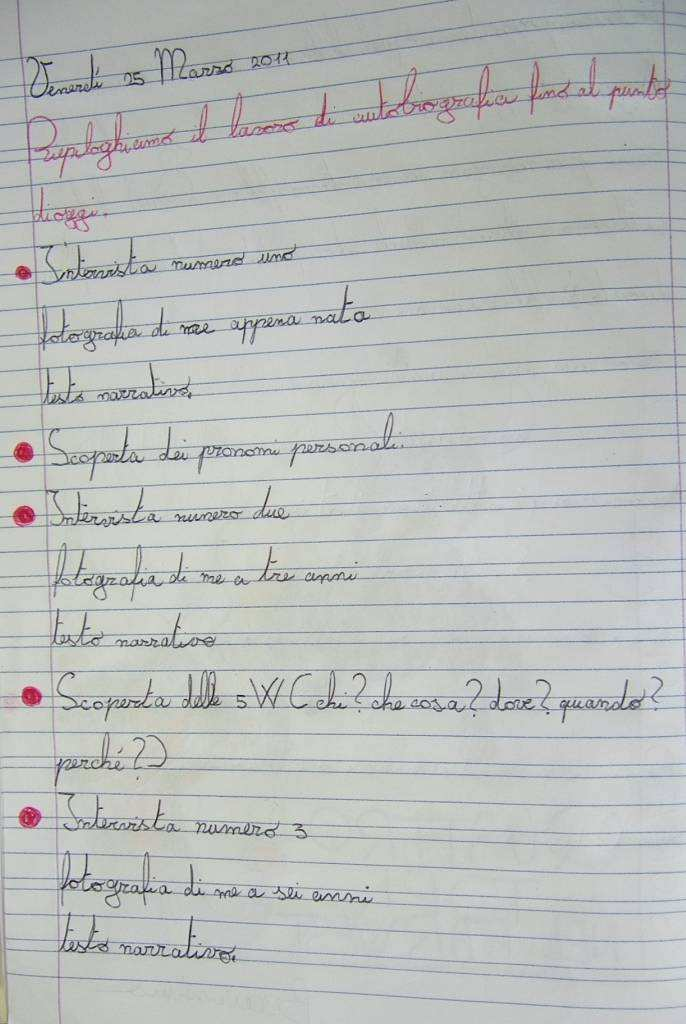 Venerdì 25 Marzo 2011
Riepiloghiamo il lavoro di autobiografia fino al punto
di oggi.
Intervista numero uno
fotografia di me appena nata
testo narrativo.
Scoperta dei pronomi personali.
Intervista numero due
fotografia di me a tre anni
testo narrativo
Scoperta delle 5 W ( chi? che cosa? dove? quando?
perché?)
Intervista numero 3
fotografia di me a sei anni
testo narrativo.